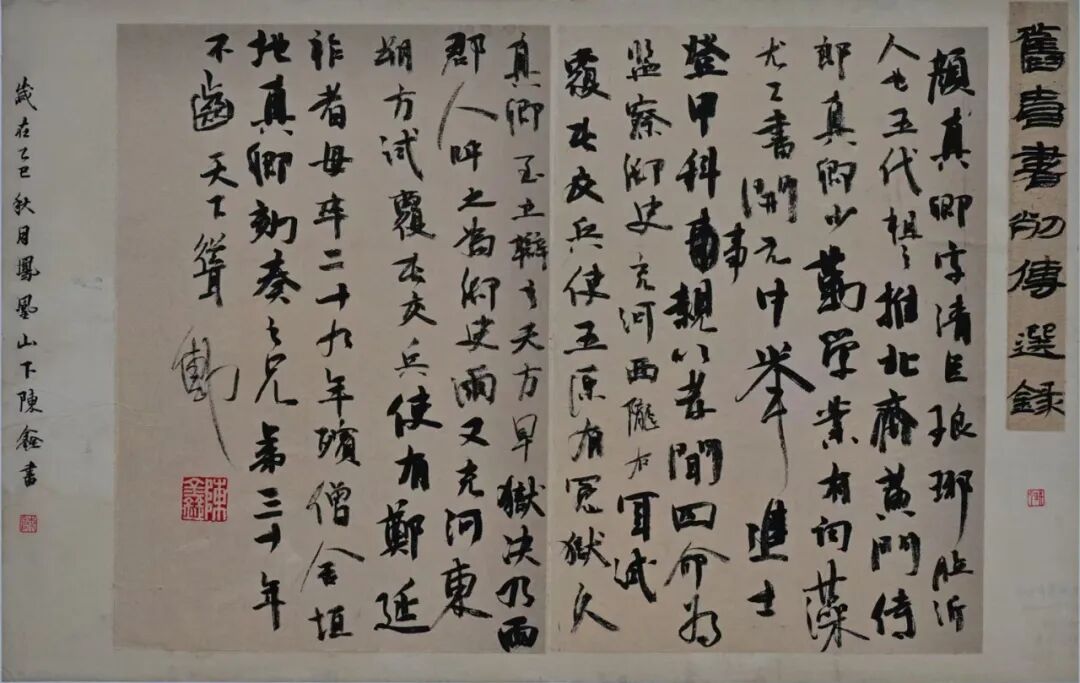 舊唐書列傳選錄
顏真卿字清臣琅琊臨沂
人也五代祖之推北齊黃門侍
郎真卿少勤學業有詞藻
尤工書開元中舉進士
登甲科事親以孝聞四命為
事
監察御史充河西隴右軍試
覆屯交兵使五原有冤獄久
真卿至立辯之天方旱獄決乃雨
郡人呼之為御史雨又充河東
朔方試覆屯交兵使有鄭延
祚者母卒二十九年殯僧舍垣
地真卿劾奏之兄弟三十年
不齒天下聳動
陳鑫
歲在乙巳秋月鳳凰山下陳鑫書